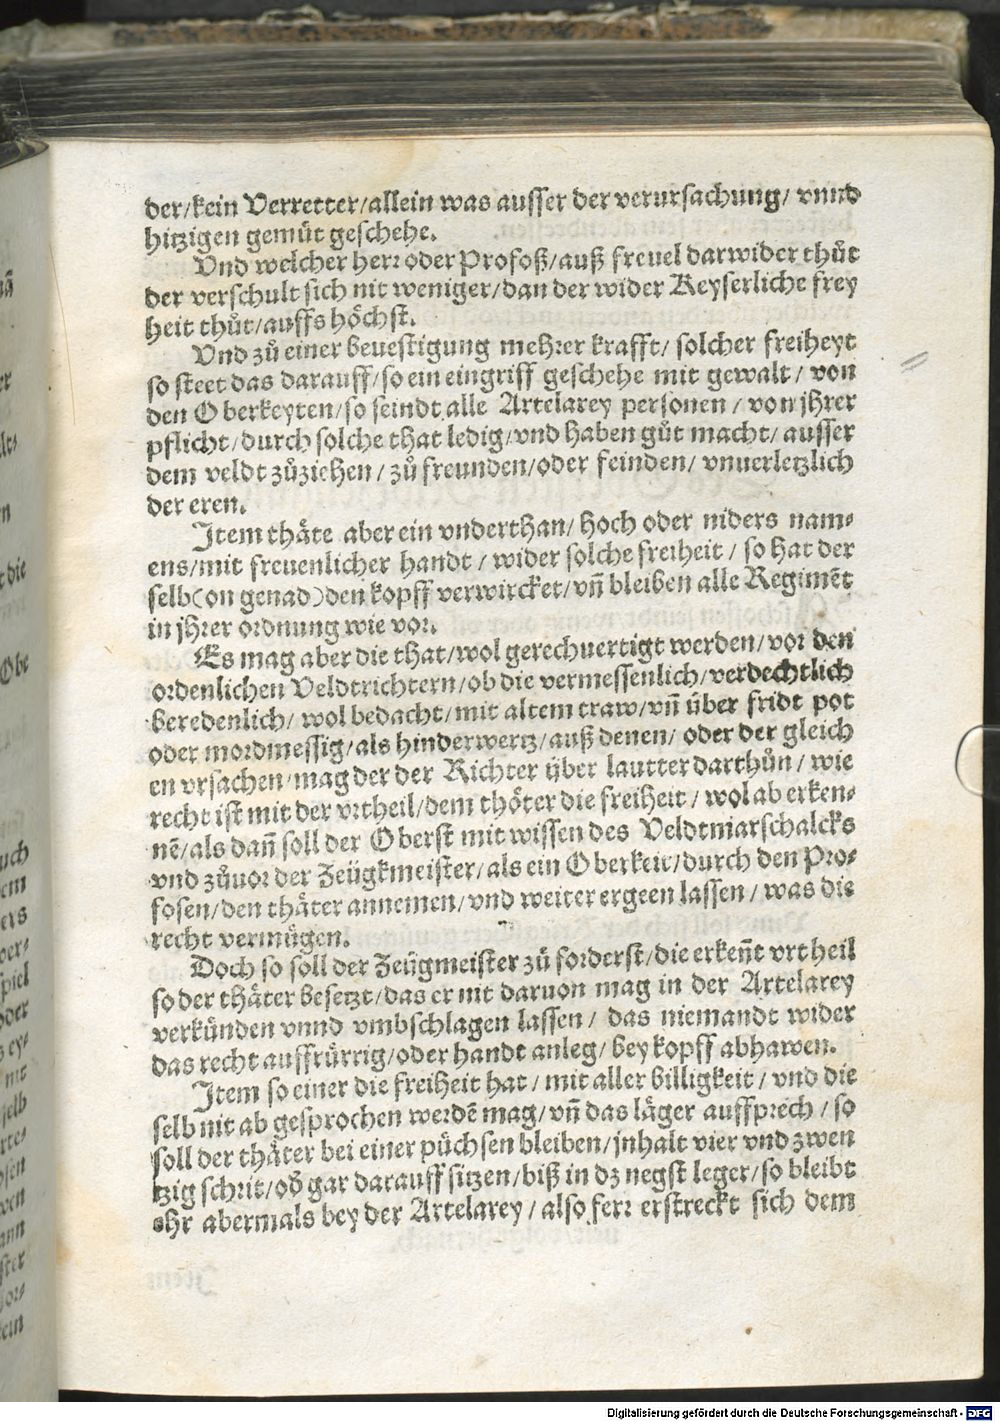 der/kein Verretter/allein was ausser der verursachung/ vnnd
hitzigen gemüt geschehe.
Vnd welcher herr oder Profoß/auß freuel darwider thůt
der verschult sich nit weniger/dan der wider Keyserliche frey
heit thůt/auffs höchst.
Vnd zů einer beuestigung mehrer krafft/ solcher freiheyt
so steet das darauff/so ein eingriff geschehe mit gewalt/ von
den Oberkeyten/so seindt alle Artelarey personen/ von jhrer
pflicht/durch solche that ledig/vnd haben gůt macht/ ausser
dem veldt zůziehen/ zů freunden/oder feinden/ vnuerletzlich
der eren.
Item thäte aber ein vnderthan/ hoch oder niders nam⸗
ens/mit freuenlicher handt/ wider solche freiheit/ so hat der
selb(on genad)den kopff verwircket/vñ bleiben alle Regimēt
in jhrer ordnung wie vor.
Es mag aber die that/wol gerechuertigt werden/vor den
ordenlichen Veldtrichtern/ob die vermessenlich/verdechtlich
beredenlich/ wol bedacht/mit altem traw/vñ über fridt pot
oder mordmessig/als hinderwertz/auß denen/ oder der gleich
en vrsachen/mag der der Richter über lautter darthůn/ wie
recht ist mit der vrtheil/dem thöter die freiheit/ wol ab erken⸗
nē/als dañ soll der Oberst mit wissen des Veldtmarschalcks
vnd zůuor der Zeügkmeister/als ein Oberkeit/durch den Pro⸗
fosen/den thäter annemen/vnd weiter ergeen lassen/ was die
recht vermügen.
Doch so soll der Zeügmeister zů forderst/die erkeñt vrtheil
so der thäter besetzt/das er nit daruon mag in der Artelarey
verkünden vnnd vmbschlagen lassen/ das niemandt wider
das recht auffrürrig/oder handt anleg/ bey kopff abhawen.
Item so einer die freiheit hat/ mit aller billigkeit/ vnd die
selb nit ab gesprochen werdē mag/vñ das läger auffprech/ so
soll der thäter bei einer püchsen bleiben/jnhalt vier vnd zwen
tzig schrit/oď gar darauff sitzen/biß in dz negst leger/so bleibt
ehr abermals bey der Artelarey/ also ferr erstreckt sich dem
Item
Digitalisierung gefördert durch die Deutsche Forschungsgemeinschaft - DFG